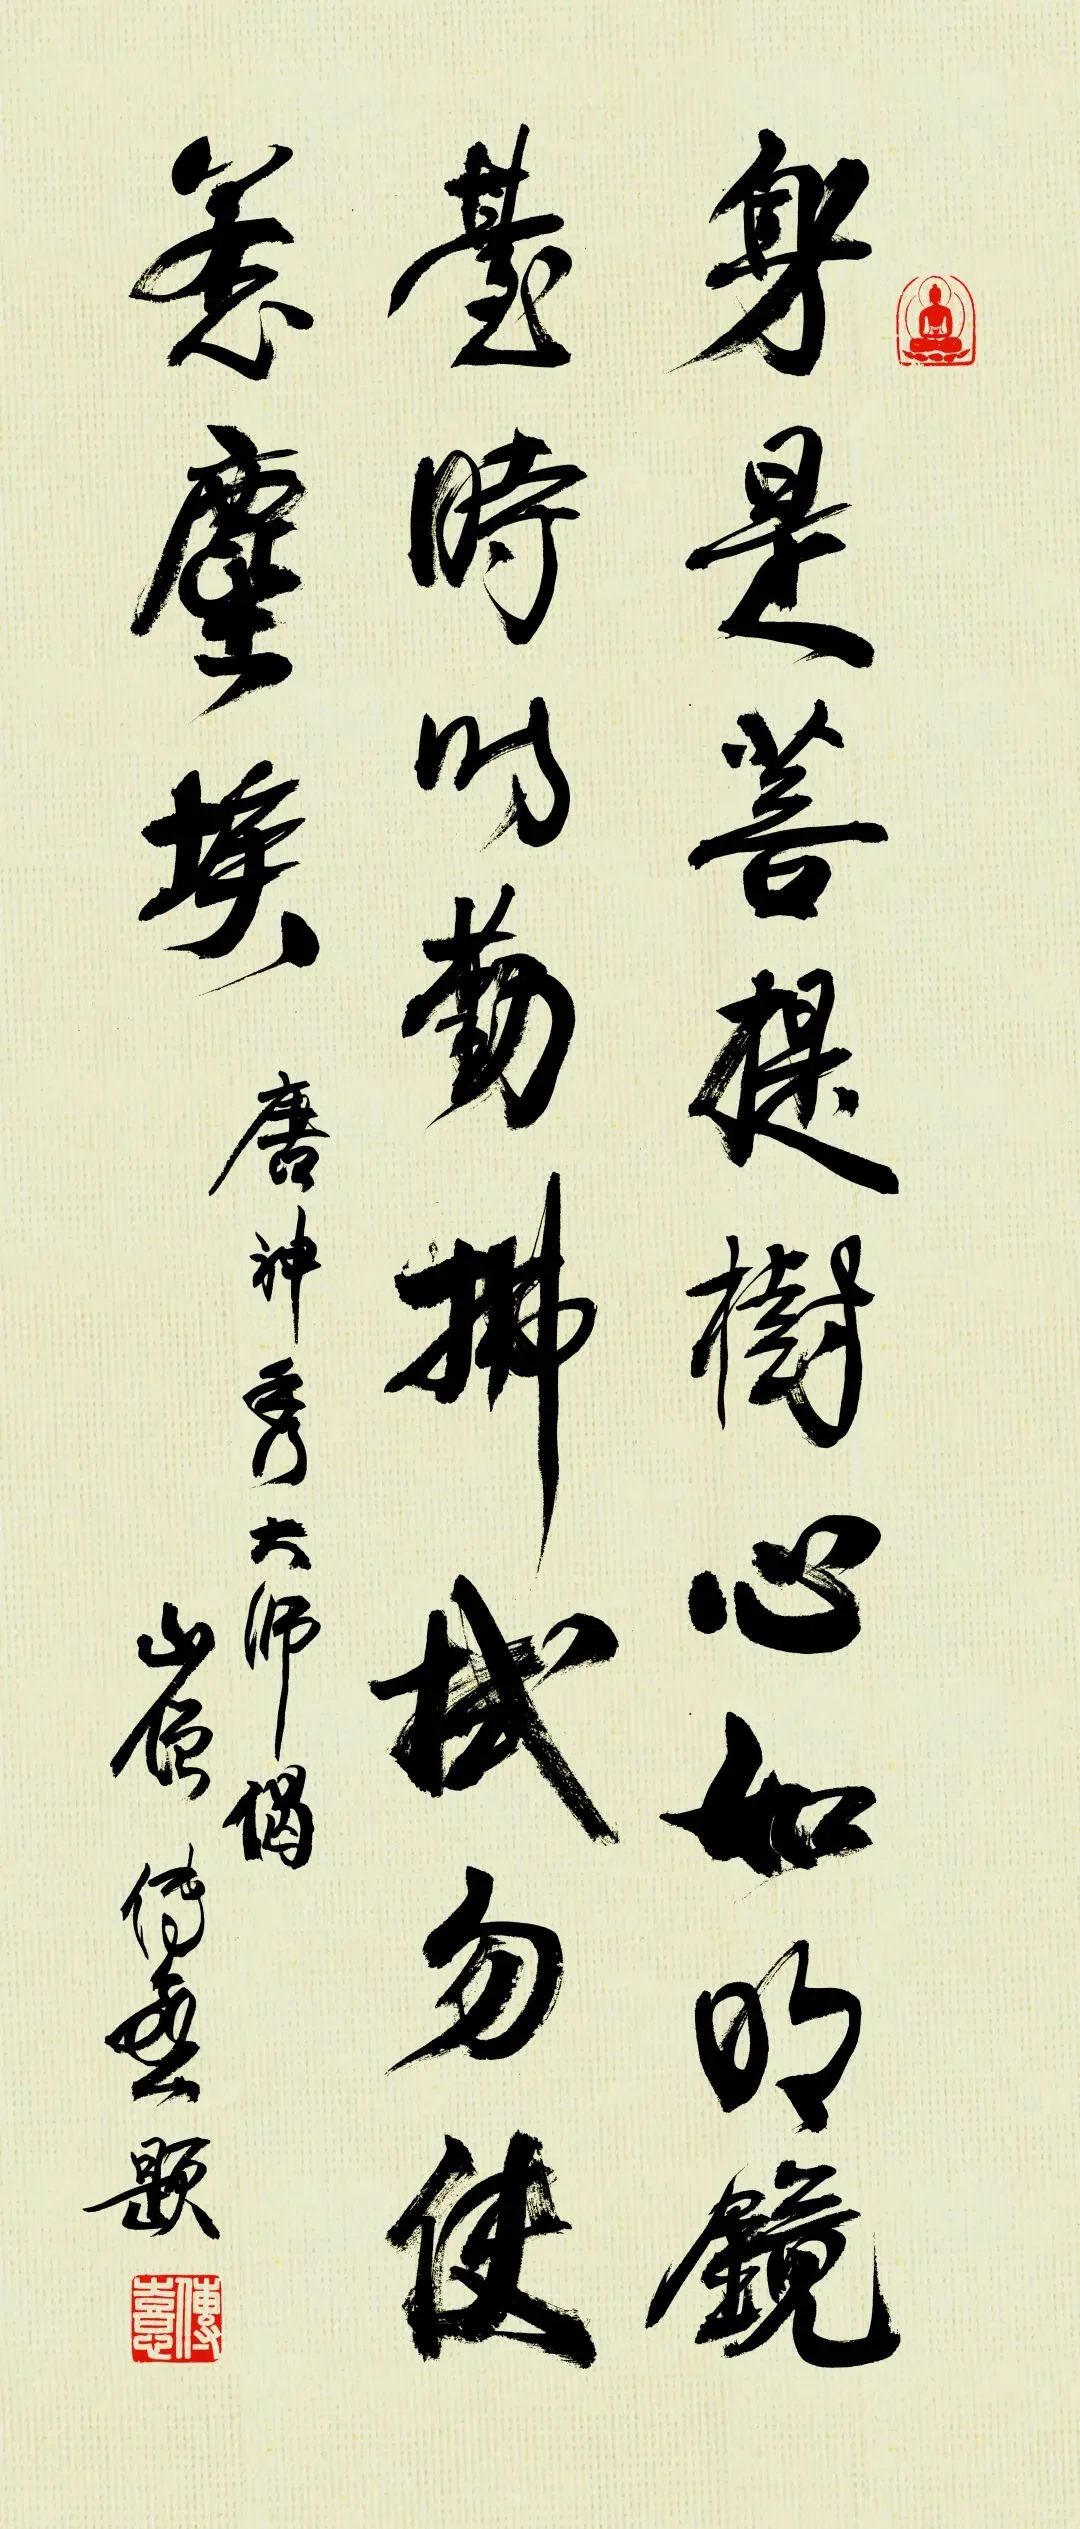 身是菩提樹心如明鏡
臺時時勤拂拭勿使
惹塵埃
唐神秀大師偈
山僧傳喜題
傳憙